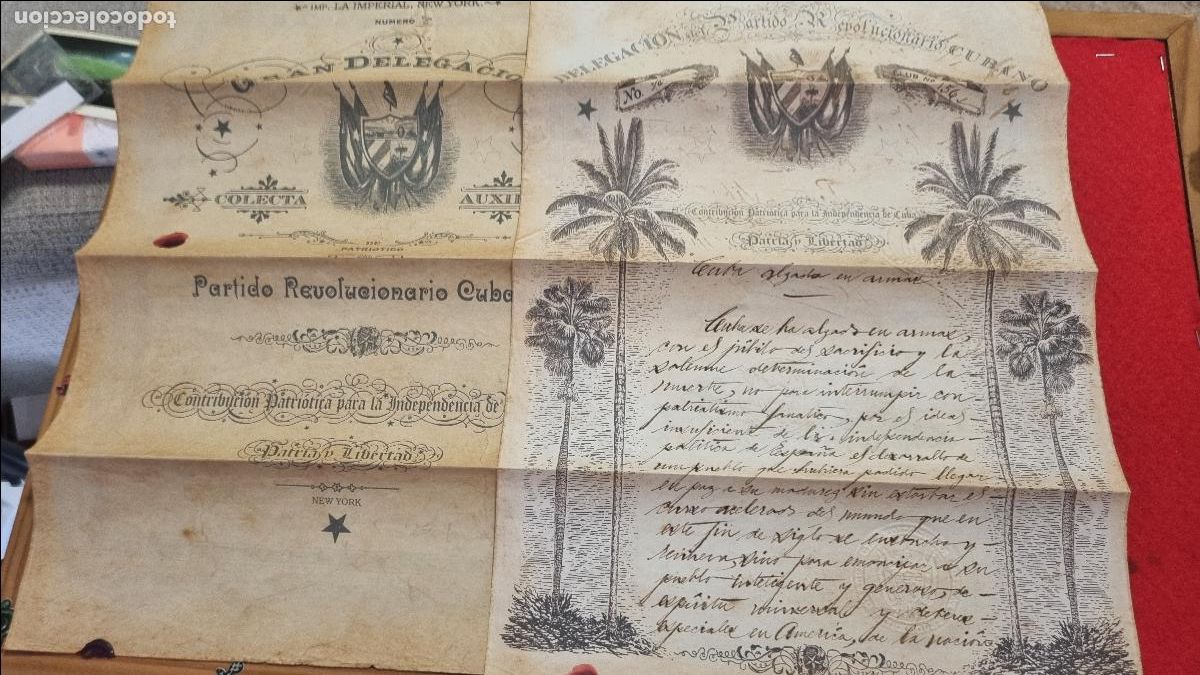 todocoleccion
IMP. LA IMPERIAL, NEW YORK.
NUMERO
GRAN DELEGACIO
COLECTA
AUXI
DEL
PATRIOTICO
Partido Revolucionario Cuba
Contribución Patriótica para la Independencia de
Patria y Libertad
NEW YORK
DELEGACION del Partido Revolucionario CUBANO
No.
CLUB No. 156
Contribución Patriótica para la Independencia de Cuba
Patria y Libertad
Cuba alzada en armas
Cuba se ha alzado en armas,
con el júbilo del sacrificio y la
solemne determinación de la
muerte, no para interrumpir con
patriotismo fanático, por el ideal
insuficiente de la independencia
política de España el desarrollo de
un pueblo que hubiera podido llegar
en paz a su madurez sin estorbar el
curso acelerado del mundo que en
este fin de siglo se ensancha y
renueva, sino para emancipar a su
pueblo inteligente y generoso, de
espíritu universal y deberes
especiales en América, de la nación